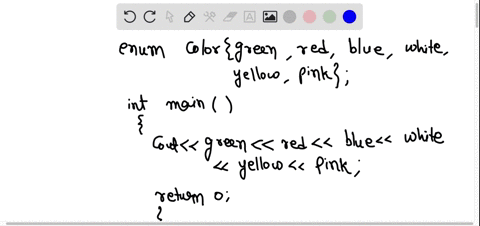 enum Color{green, red, blue, white,
yellow, pink};
int main()
{
Cout<< green << red << blue << white
<< yellow << pink;
return 0;
{